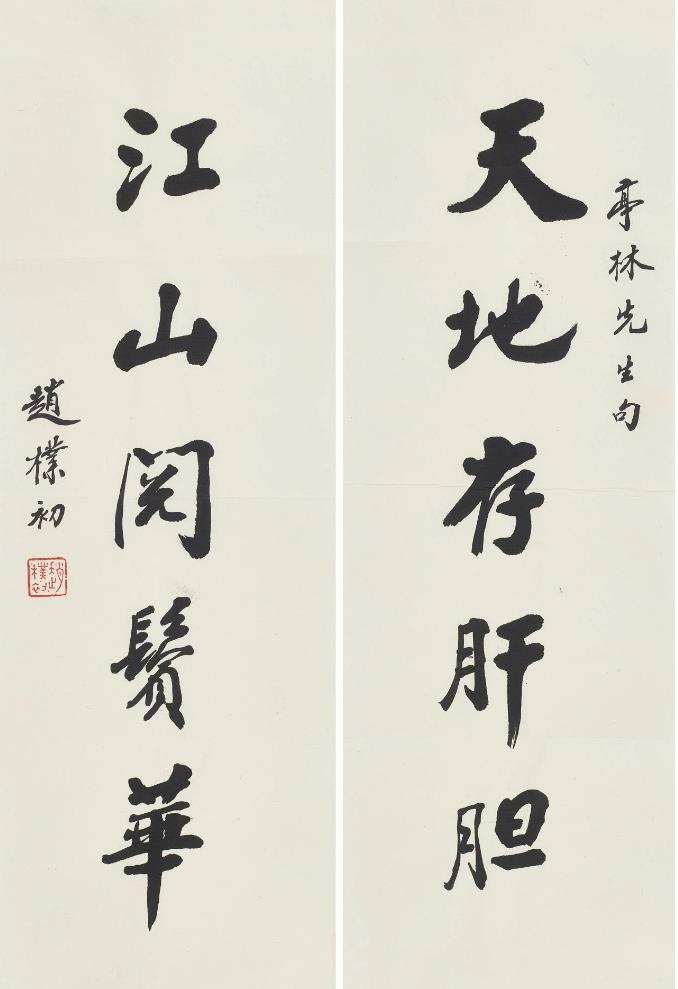 亭林先生句
天地存肝胆
江山阅鬢華
趙樸初
趙樸初